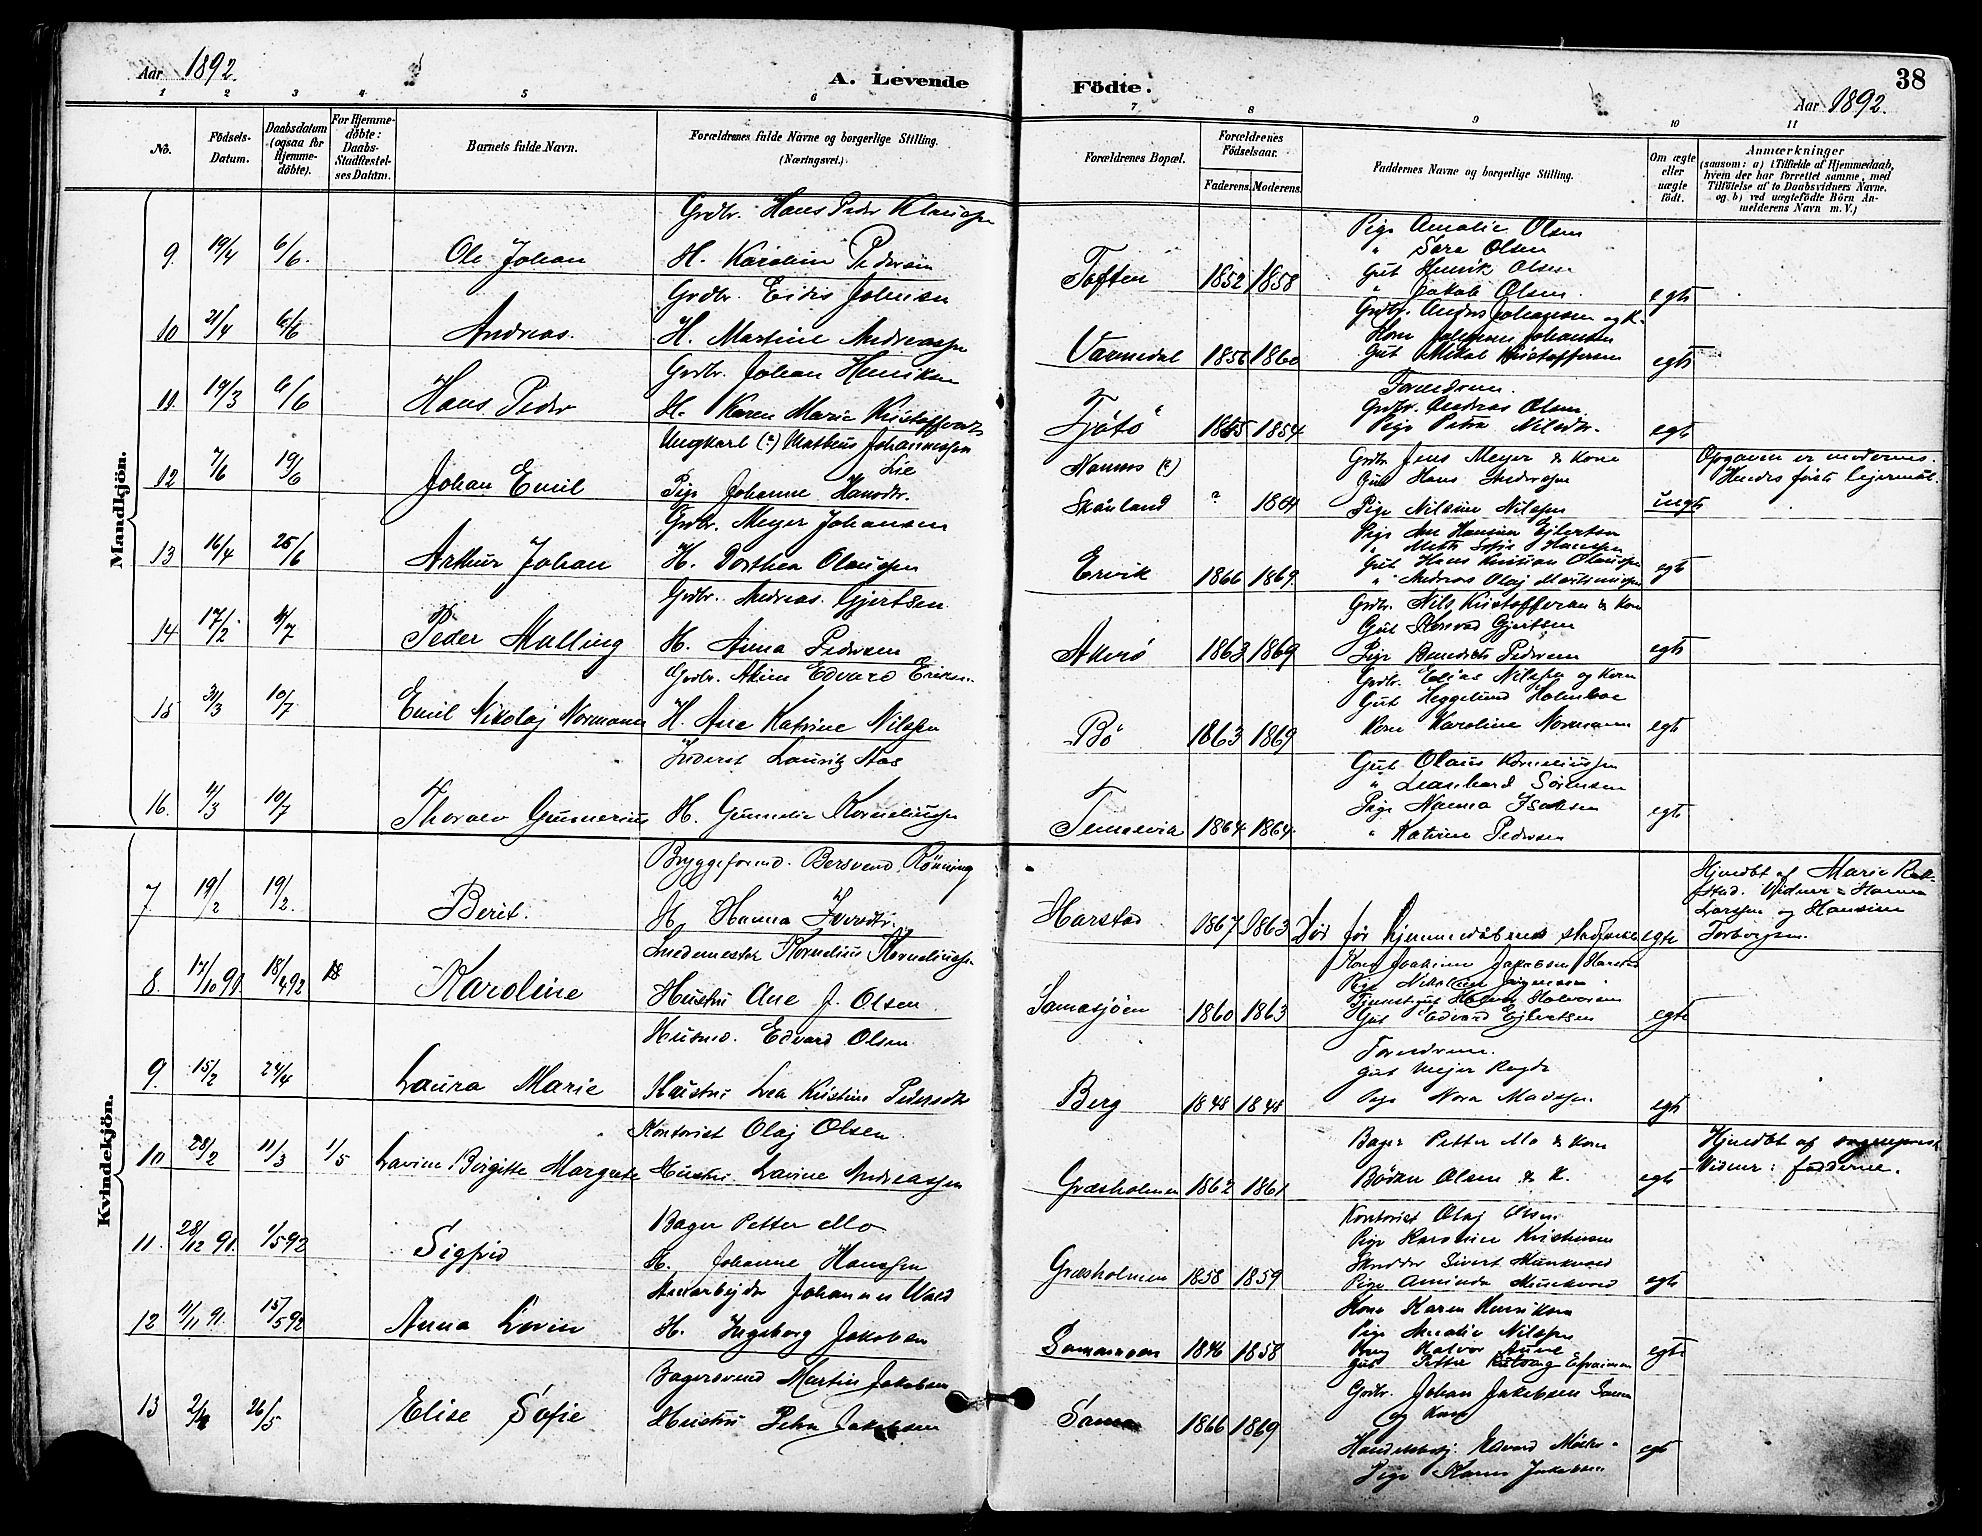 Aar 1892.
A. Levende
Födte.
38
Aar 1892.
1 2 3 4 5 6 7 8 9 10 11
No.
Födsels-
Datum.
Daabsdatum
(ogsaa for
Hjemme-
döbte).
For Hjemme-
döbte:
Daabs-
Stadfæstel-
ses Datum.
Barnets fulde Navn.
Forældrenes fulde Navne og borgerlige Stilling.
(Næringsvei.)
Forældrenes Bopæl.
Forældrenes
Födselsaar.
Faderens. Moderens.
Faddernes Navne og borgerlige Stilling.
Om ægte
eller
uægte
födt.
Anmærkninger
(saasom: a) i Tilfælde af Hjemmedaab,
hvem der har forrettet samme, med
Tilföielse af to Daabsvidners Navne,
og b) ved uægtefödte Börn An-
melderens Navn m. V.)
Mandkjön.
9. 19/4 6/6. Ole Johan
Grdbr. Hans Peder Klaussen
H. Karoline Pedersen
Toften 1852 1858
Pige Amalie Olsen
" Sara Olsen
Gut Henrik Olsen
" Jakob Olsen.
egte
10 21/4 6/6 Andreas.
Grdbr. Eidis Johnsen
H. Martine Andreassen
Varmedal 1856 1860
Grdbr. Anders Johansen og K.
Kone Johansen
Gut Mikal Kristoffersen
egte
11. 19/3 6/6 Hans Peder
Grdbr. Johan Henriksen
H. Karen Marie Kristoffersdtr
Tjötö 1855 1854
Forældrene.
Grdbr. Andreas Olsen.
Pige Petra Nilsdtr.
egte
12 7/6 19/6 Johan Emil
Ungkarl (?) Matheus Johannessen
Lie
Pige Johanne Hansdtr.
(?)
Skånland ? 1864
Grdbr Jens Meyer & Kone
Gut Hans Andersen
Pige Nilsine Nilssen
uegte
Opgaven er moderens.
Hendes förste lejermål.
13 16/4 26/6 Arthur Johan
Grdbr. Meyer Johansen
H. Dorthea Olaussen
Ervik 1866 1869.
Pige Ane Hansine Ejlertsen
" Mette Sofie Hanssen
Gut Hans Kristian Olaussen
" Andreas Olaj Martinussen
egte
14 17/2 /7 Peder Malling
Grdbr. Andreas Gjertsen
H. Anna Pedersen
Akerö 1863 1869
Grdbr. Nils Kristoffersen & Kone
Gut Gjertsen
Pige Benedikte Pedersen
egte
15 3/3 10/7 Emil Nikolaj Normann
Grdbr. Akim Edvard Eriksen
H. Ane Katrine Nilssen
Bö 1863 1869
Grdbr. Elias Nilssen og Kone
Gut Heggelund Holmboe
Kone Karoline Normann
egte
16. 11/3 10/7 Thoralv Gunnerius
Inderst Lauritz Aas
H. Gunnelie Korneliussen
Temasvia 1864. 1864.
Gut Olaus Korneliussen
" Leonhard Sörensen
Pige Nanna Isaksen
" Katrine Pedersen
egte
Kvindekjön.
7 19/2 19/2. Berit.
Bryggeformd. Bersvend Rönning
H. Hanna Iversdtr.
Harstad 1867 1863
Död för hjemmedåbens stadfæstelse
egte
Hjmdöbt af Marie Rok-
stad. Vidner: Hanna
Larssen og Hansine
Torbergsen.
8. 17/10 91 18/4 92 18 Karoline
Smedemester Kornelius Korneliussen
Hustru Ane J. Olsen
Samasjöen 1860 1863
Kone Joakime Jakobsen Harstad
Pige Jörgensen
Tjenestgut Halvorsen
Gut Edvard Ejlertsen
egte
9. 15/2 24/4 Laura Marie
Husmd. Edvard Olsen
Hustru Lea Kristine Pedersdtr
Berg 1848 1848
Forældrene.
Gut Mejer Rogde
Pige Nora Madssen
egte
10 28/2 11/3 1/5 Lavine Birgitte Margrete
Kontorist Olaj Olsen
Hustru Lavine Andreassen
Græsholmen 1862 1861
Bager Petter Mo & Kone
Bödker Olsen & K.
egte
Hjmdöbt af sogneprest
Vidner: fadderne.
11. 28/12 91. 1/5 92 Sigfrid
Bager Petter Mo
H. Johanne Hanssen
Græsholmen 1858 1859
Kontorist Olaj Olsen
Pige Karoline Kristensen
Skrædder Sivert Munkvold
Pige Aminda Munkvold
egte
12 11/11 91. 15/5 92 Anna Lovise
Anlarbejder Johannes Wold
H. Ingeborg Jakobsen
Samamoen 1846 1858
Kone Karen Henriksen
Pige Amalie Nilssen
Halvor Aune
Gut Petter Efraimsen
egte
13 2/4 26/5 Elise Sofie
Bagersvend Martin Jakobsen
Hustru Petra Jakobsen
Sama 1866 1869
Grdbr. Johan Jakobsen Sama
og Kone
Handelsbetj. Edvard
Pige Karen Jakobsen
egte